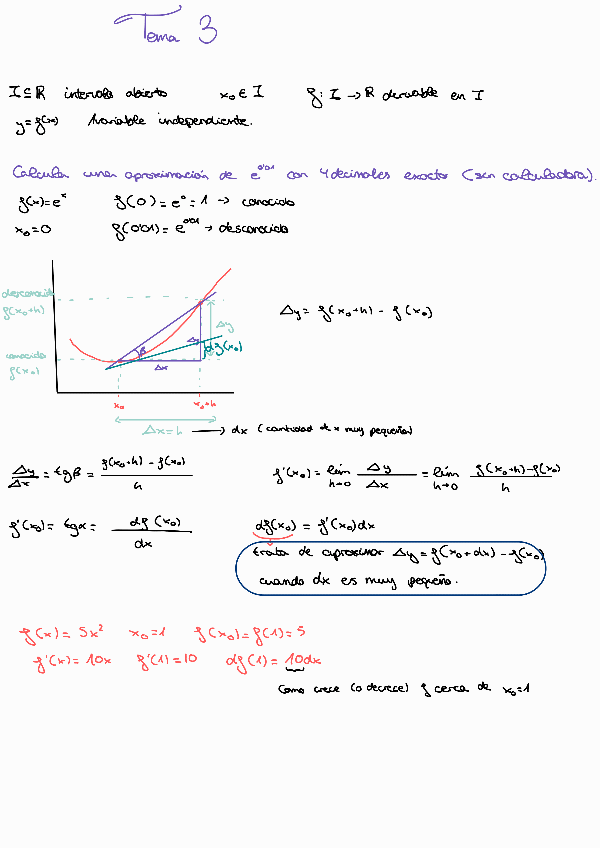 Tema 3
I ⊆ ℝ intervalo abierto x₀ ∈ I f: I → ℝ derivable en I
y = f(x) variable independiente.
Calcular una aproximación de e^0'01 con 4 decimales exactos (sin calculadora).
f(x) = eˣ f(0) = e⁰ = 1 → conocido
x₀ = 0 f(0'01) = e^0'01 → desconocido
desconocido
f(x₀+h)
Δy = f(x₀+h) - f(x₀)
Δy
Δy
df(x₀)
β
conocido
f(x₀)
Δx
x₀ x₀+h
Δx = h → dx (cantidad de x muy pequeña)
Δy/Δx = tgβ = (f(x₀+h) - f(x₀))/h f'(x₀) = lím h→0 Δy/Δx = lím h→0 (f(x₀+h) - f(x₀))/h
f'(x₀) = tgα = df(x₀)/dx df(x₀) = f'(x₀)dx
trata de aproximar Δy = f(x₀+dx) - f(x₀)
cuando dx es muy pequeño.
f(x) = 5x² x₀ = 1 f(x₀) = f(1) = 5
f'(x) = 10x f'(1) = 10 df(1) = 10dx
Como crece (o decrece) f cerca de x₀ = 1